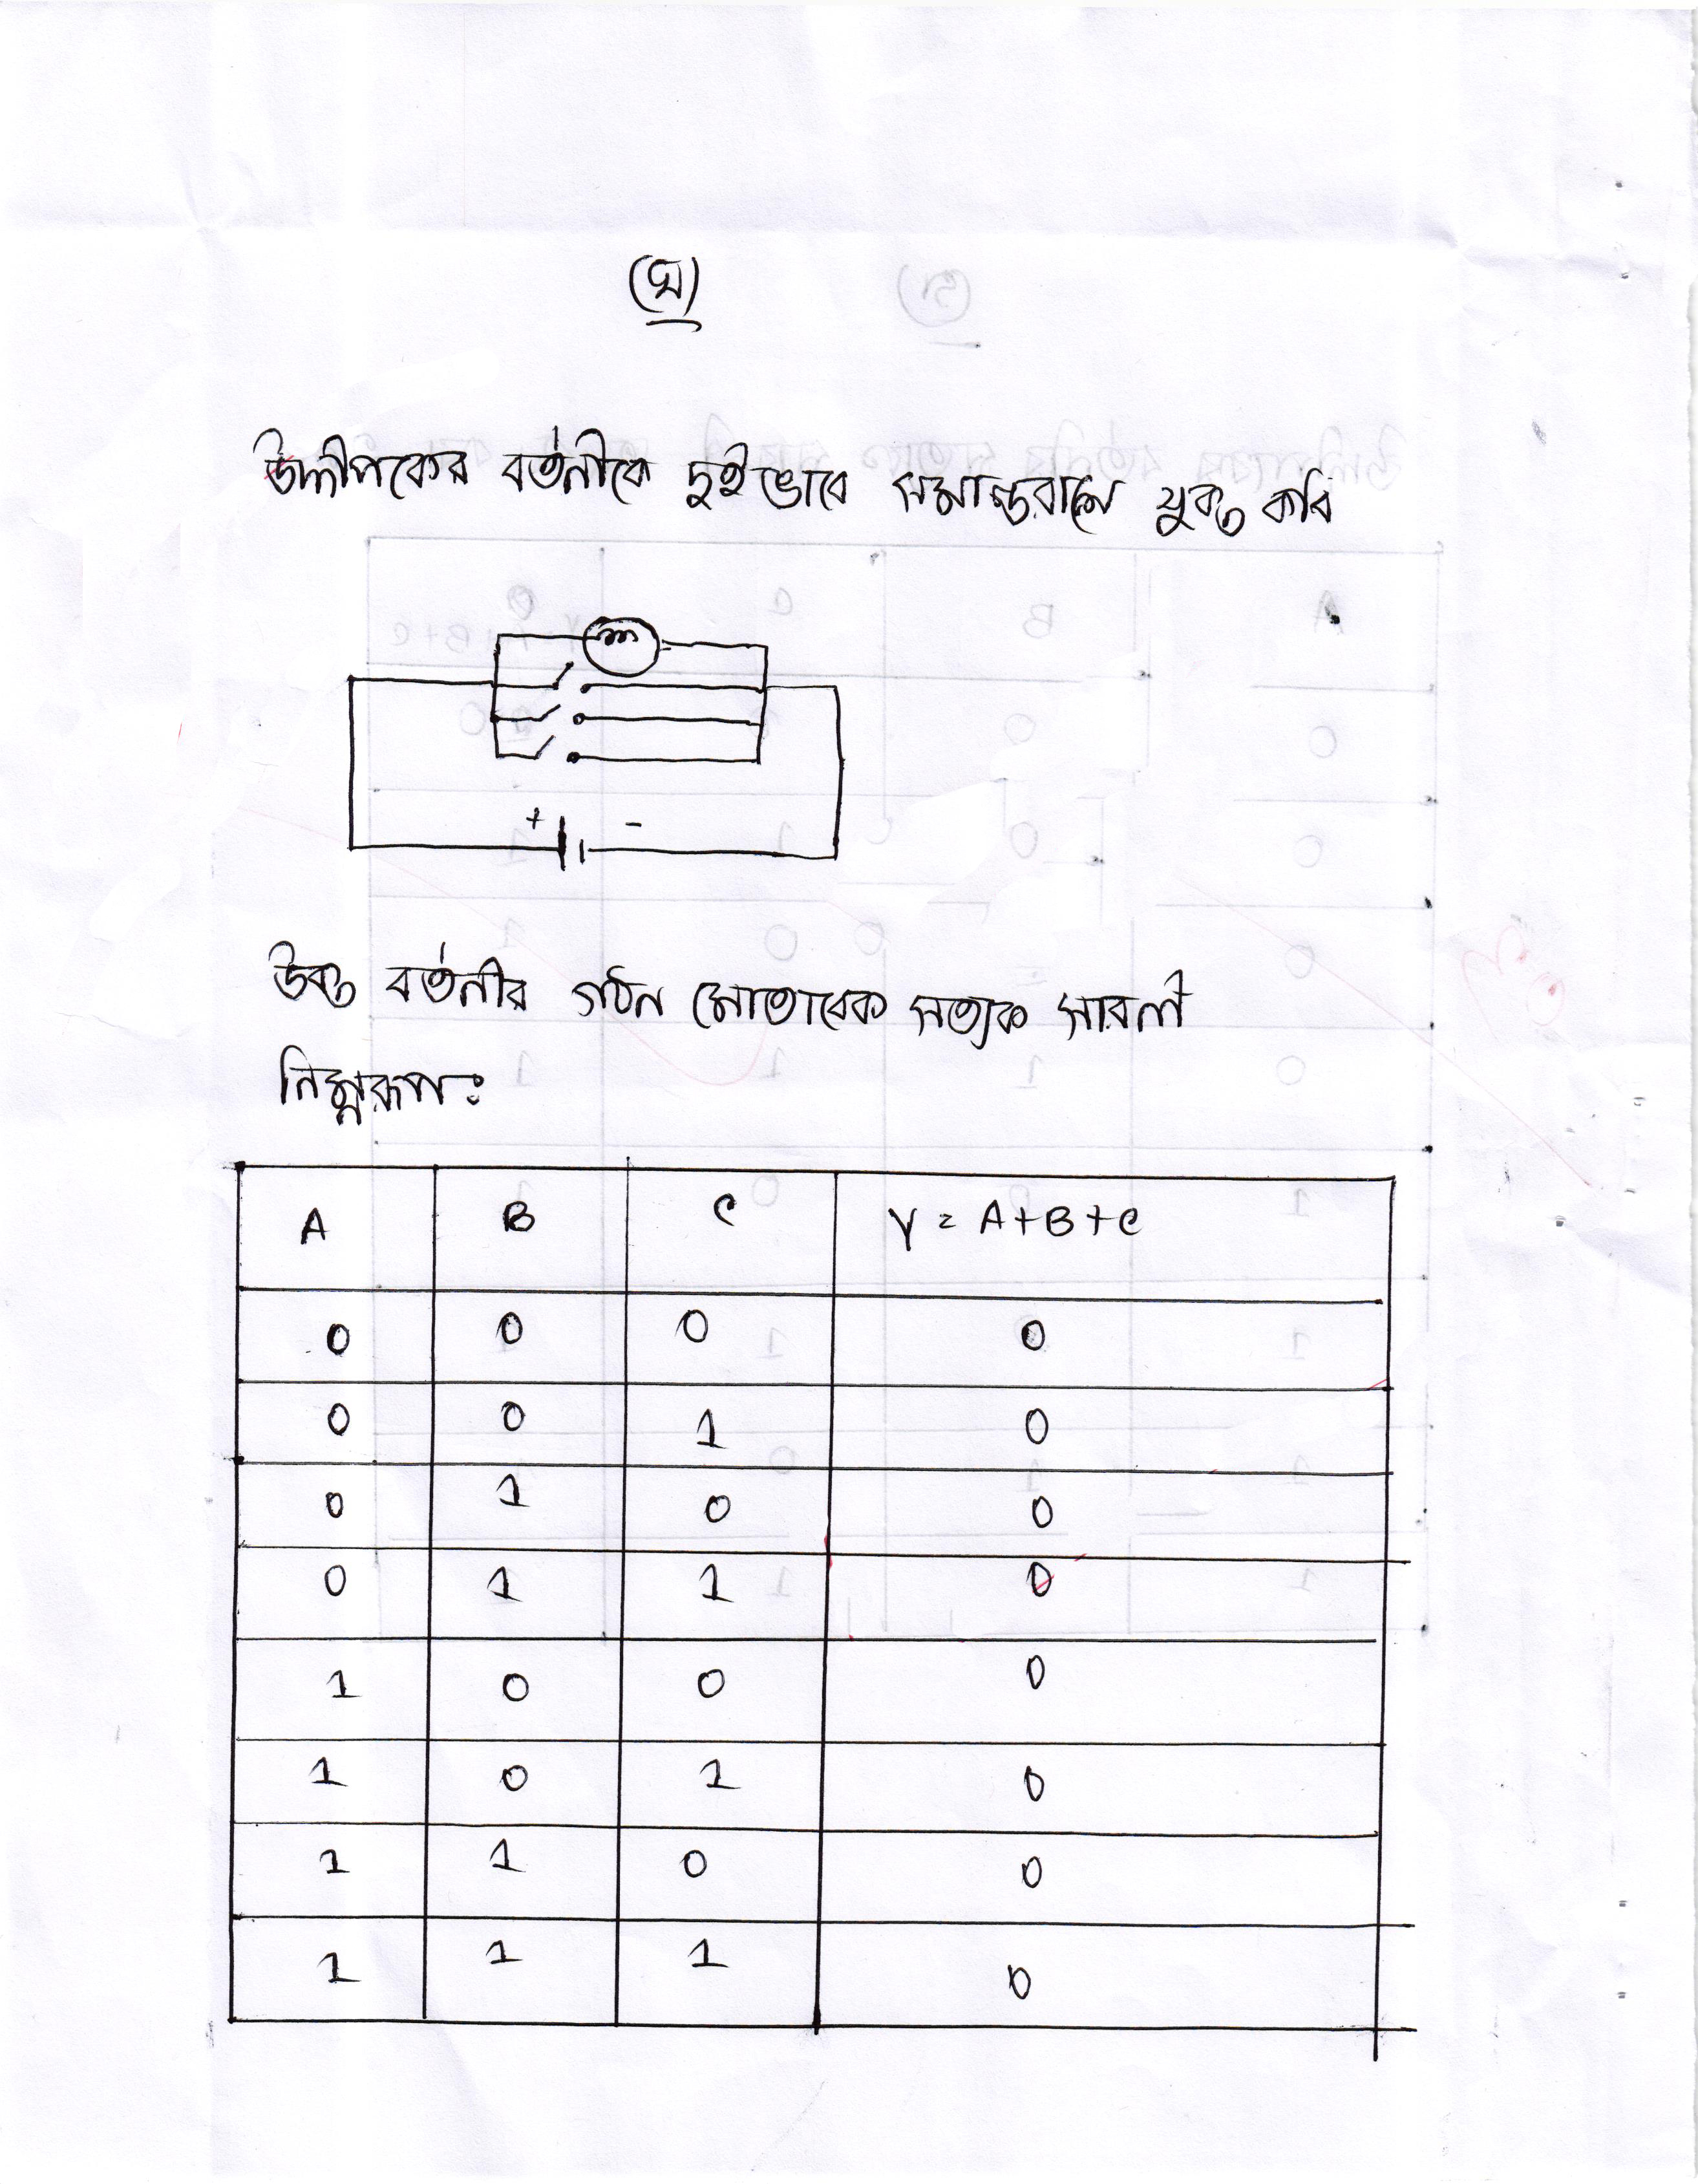 (ঘ)
উদ্দীপকের বর্তনীকে দুইভাবে সমান্তরালে যুক্ত করি
+ -
উক্ত বর্তনীর গঠন মোতাবেক সত্যক সারণী
নিম্নরূপঃ
A B C Y = A+B+C
0 0 0 0
0 0 1 0
0 1 0 0
0 1 1 0
1 0 0 0
1 0 1 0
1 1 0 0
1 1 1 0